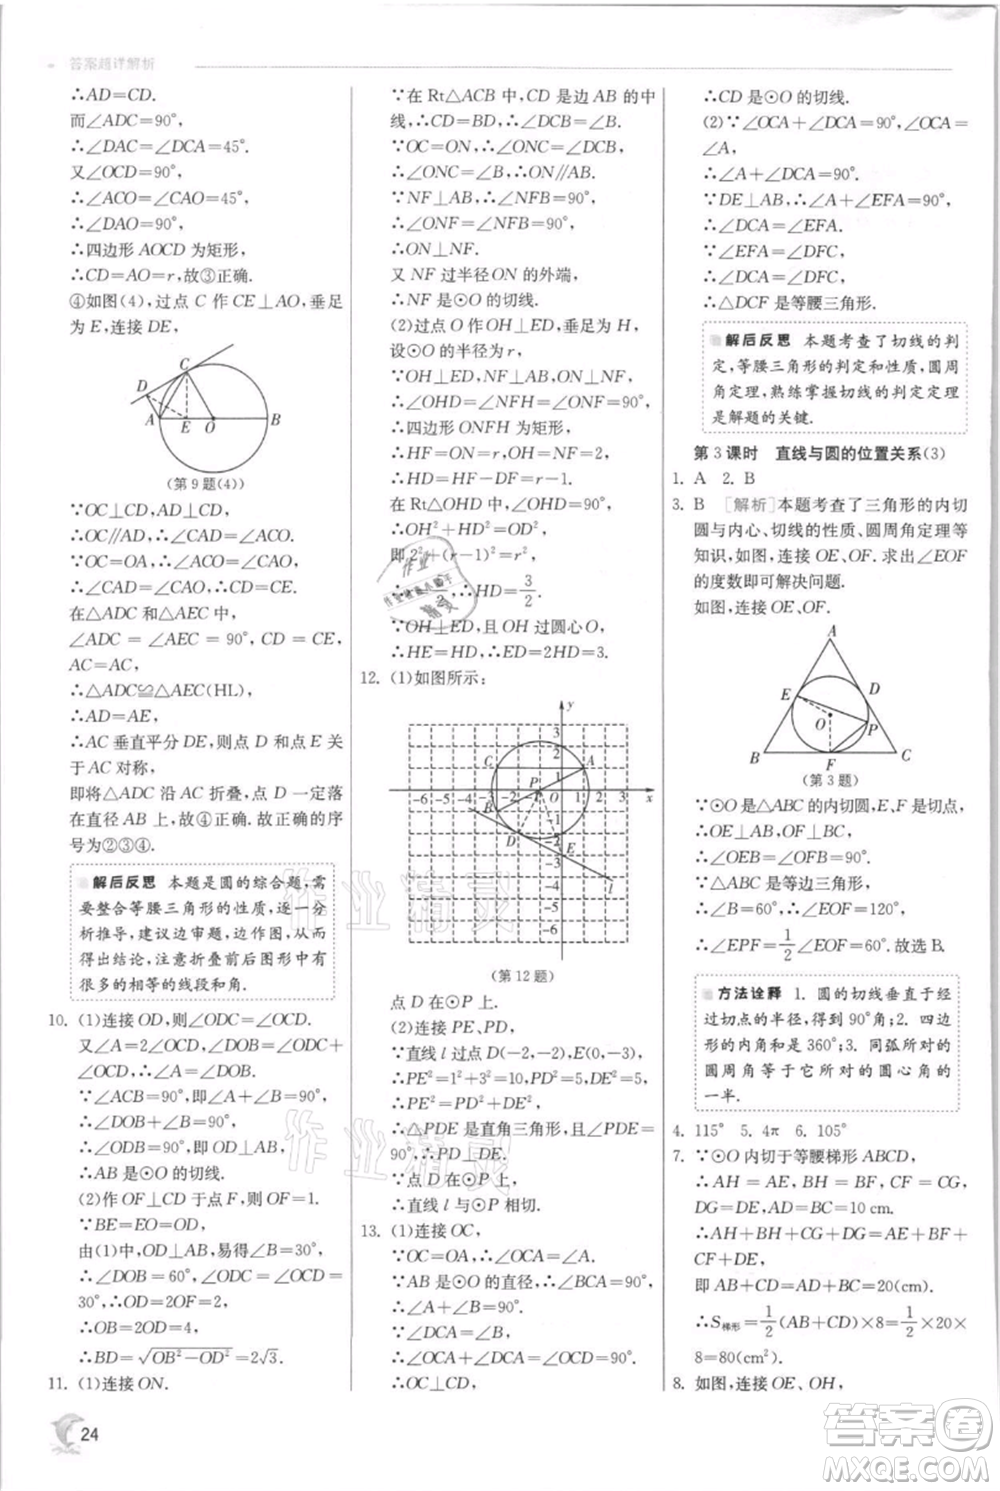 答案超详解析
∴AD=CD.
而∠ADC=90°,
∴∠DAC=∠DCA=45°.
又∠OCD=90°,
∴∠ACO=∠CAO=45°,
∴∠DAO=90°,
∴四边形 AOCD 为矩形,
∴CD=AO=r,故③正确.
④如图(4),过点 C 作 CE⊥AO,垂足
为 E,连接 DE,
D
C
A
E
O
B
(第 9 题(4))
∵OC⊥CD,AD⊥CD,
∴OC∥AD,∴∠CAD=∠OCA.
∵OC=OA,∴∠OCA=∠CAO,
∴∠CAD=∠CAO,∴CD=CE.
在△ADC 和△AEC 中,
∠ADC=∠AEC=90°,CD=CE,
AC=AC,
∴△ADC≌△AEC(HL),
∴AD=AE,
∴AC 垂直平分 DE,则点 D 和点 E 关
于 AC 对称,
即将△ADC 沿 AC 折叠,点 D 一定落
在直径 AB 上,故④正确.故正确的序
号为②③④.
解后反思 本题是圆的综合题,需
要整合等腰三角形的性质,逐一分
析推导,建议边审题,边作图,从图中
得出结论,注意折叠前后图形中有
很多的相等的线段和角.
10. (1)连接 OD,则∠ODC=∠OCD.
又∠A=2∠OCD=∠OCD+∠ODC,
∴∠A=∠DOB.
∵∠ACB=90°,即∠A+∠B=90°,
∴∠DOB+∠B=90°,
∴∠ODB=90°,即 OD⊥AB,
∴AB 是⊙O 的切线.
(2)作 OF⊥CD 于点 F,则 OF=1.
∵BE=EO=OD,
由(1)中 OD⊥AB,易得∠B=30°,
∴∠DOB=60°,∠ODC=∠OCD=
30°,∴OD=2OF=2,
∴OB=2OD=4,
∴BD=√(OB²−OD²)=2√3.
11. (1)连接 ON.
∵在 Rt△ACB 中,CD 是边 AB 的中
线,∴CD=BD,∴∠DCB=∠B.
∵OC=ON,∴∠ONC=∠DCB,
∴∠ONC=∠B,∴ON∥AB.
∵NF⊥AB,∴∠NFB=90°,
∴∠ONF=∠NFB=90°,
∴ON⊥NF.
又 NF 过半径 ON 的外端,
∴NF 是⊙O 的切线.
(2)过点 O 作 OH⊥ED,垂足为 H,
设⊙O 的半径为 r,
∵OH⊥ED,NF⊥AB,ON⊥NF,
∴∠OHD=∠NFH=∠ONF=90°,
∴四边形 ONFH 为矩形,
∴HF=ON=r,OH=NF=2,
∴HD=HF−DF=r−1.
在 Rt△OHD 中,∠OHD=90°,
∴OH²+HD²=OD²,
即 2²+(r−1)²=r²,
∴HD=3/2.
∵OH⊥ED,且 OH 过圆心 O,
∴HE=HD,∴ED=2HD=3.
12. (1)如图所示:
y
x
C
A
P
O
B
D
E
l
3
2
1
−1
−2
−3
−4
−5
−6
−6 −5 −4 −3 −2 −1 1 2 3
(第 12 题)
点 D 在⊙P 上.
(2)连接 PE,PD,
∵直线 l 过点 D(−2,−2),E(0,−3),
∴PE²=1²+3²=10,PD²=5,DE²=5,
∴PE²=PD²+DE²,
∴△PDE 是直角三角形,且∠PDE=
90°,∴PD⊥DE.
∵点 D 在⊙P 上,
∴直线 l 与⊙P 相切.
13. (1)连接 OC,
∵OC=OA,∴∠OCA=∠A.
∵AB 是⊙O 的直径,∴∠BCA=90°,
∴∠A+∠B=90°.
∵∠DCA=∠B,
∴∠OCA+∠DCA=∠OCD=90°,
∴OC⊥CD,
∴CD 是⊙O 的切线.
(2)∵∠OCA+∠DCA=90°,∠OCA=
∠A,
∴∠A+∠DCA=90°.
∵DE⊥AB,∴∠A+∠EFA=90°,
∴∠DCA=∠EFA.
∵∠EFA=∠DFC,
∴∠DCA=∠DFC,
∴△DCF 是等腰三角形.
解后反思 本题考查了切线的判
定,等腰三角形的判定和性质,圆周
角定理,熟练掌握切线的判定定理
是解题的关键.
第 3 课时 直线与圆的位置关系(3)
1. A 2. B
3. B [解析]本题考查了三角形的内切
圆与内心、切线的性质、圆周角定理等
知识,如图,连接 OE,OF. 求出∠EOF
的度数即可解决问题.
如图,连接 OE,OF.
A
E
D
O
P
B
F
C
(第 3 题)
∵⊙O 是△ABC 的内切圆,E,F 是切点,
∴OE⊥AB,OF⊥BC,
∴∠OEB=∠OFB=90°.
∵△ABC 是等边三角形,
∴∠B=60°,∴∠EOF=120°,
∴∠EPF=1/2∠EOF=60°.故选 B.
方法诠释 1. 圆的切线垂直于经
过切点的半径,得到 90°角;2. 四边
形的内角和是 360°;3. 同弧所对的
圆周角等于它所对的圆心角的
一半.
4. 115° 5. 4π 6. 105°
7. ∵⊙O 内切于等腰梯形 ABCD,
∴AH=AE,BH=BF,CF=CG,
DG=DE,AB=CD=10 cm,
∴AH+BH+CG+DG=AE+BF+
CF+DE,
即 AB+CD=AD+BC=20(cm).
∴S梯形=1/2(AB+CD)×8=1/2×20×
8=80(cm²).
8. 如图,连接 OE,OH,
24
作业精灵
作业精灵
答案圈
MXQE.COM